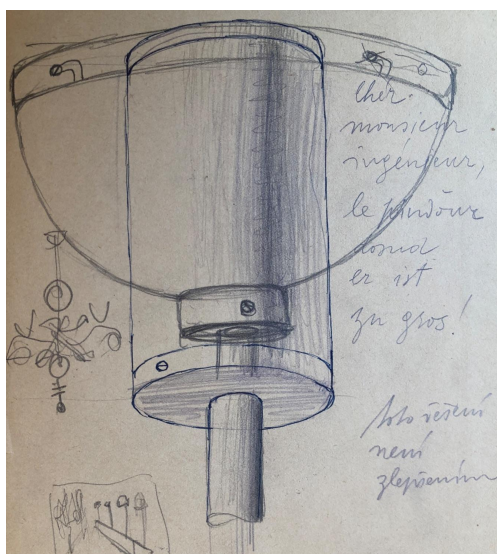 cher.
monsieur
ingénieur,
le
er ist
zu gros!
toto řešení
není
zlepšením